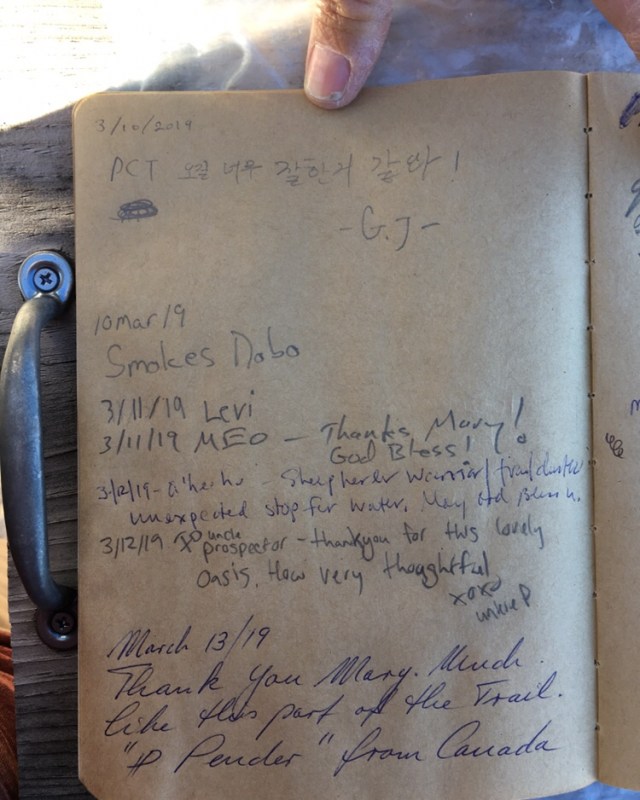 3/10/2019
PCT 오길 너무 잘한거 같아!
-G.J-
10 Mar 19
Smokes Dobo
3/11/19 Levi
3/11/19 MEO - Thanks Mary!
God Bless!
3/12/19- - Shepherder Warrior/
unexpected stop for water. May God Bless U.
3/12/19 uncle
prospector - thankyou for this lovely
oasis. How very thoughtful
xoxo
unkle P
March 13/19
Thank you Mary. Much
like this part of the Trail.
Pender" from Canada